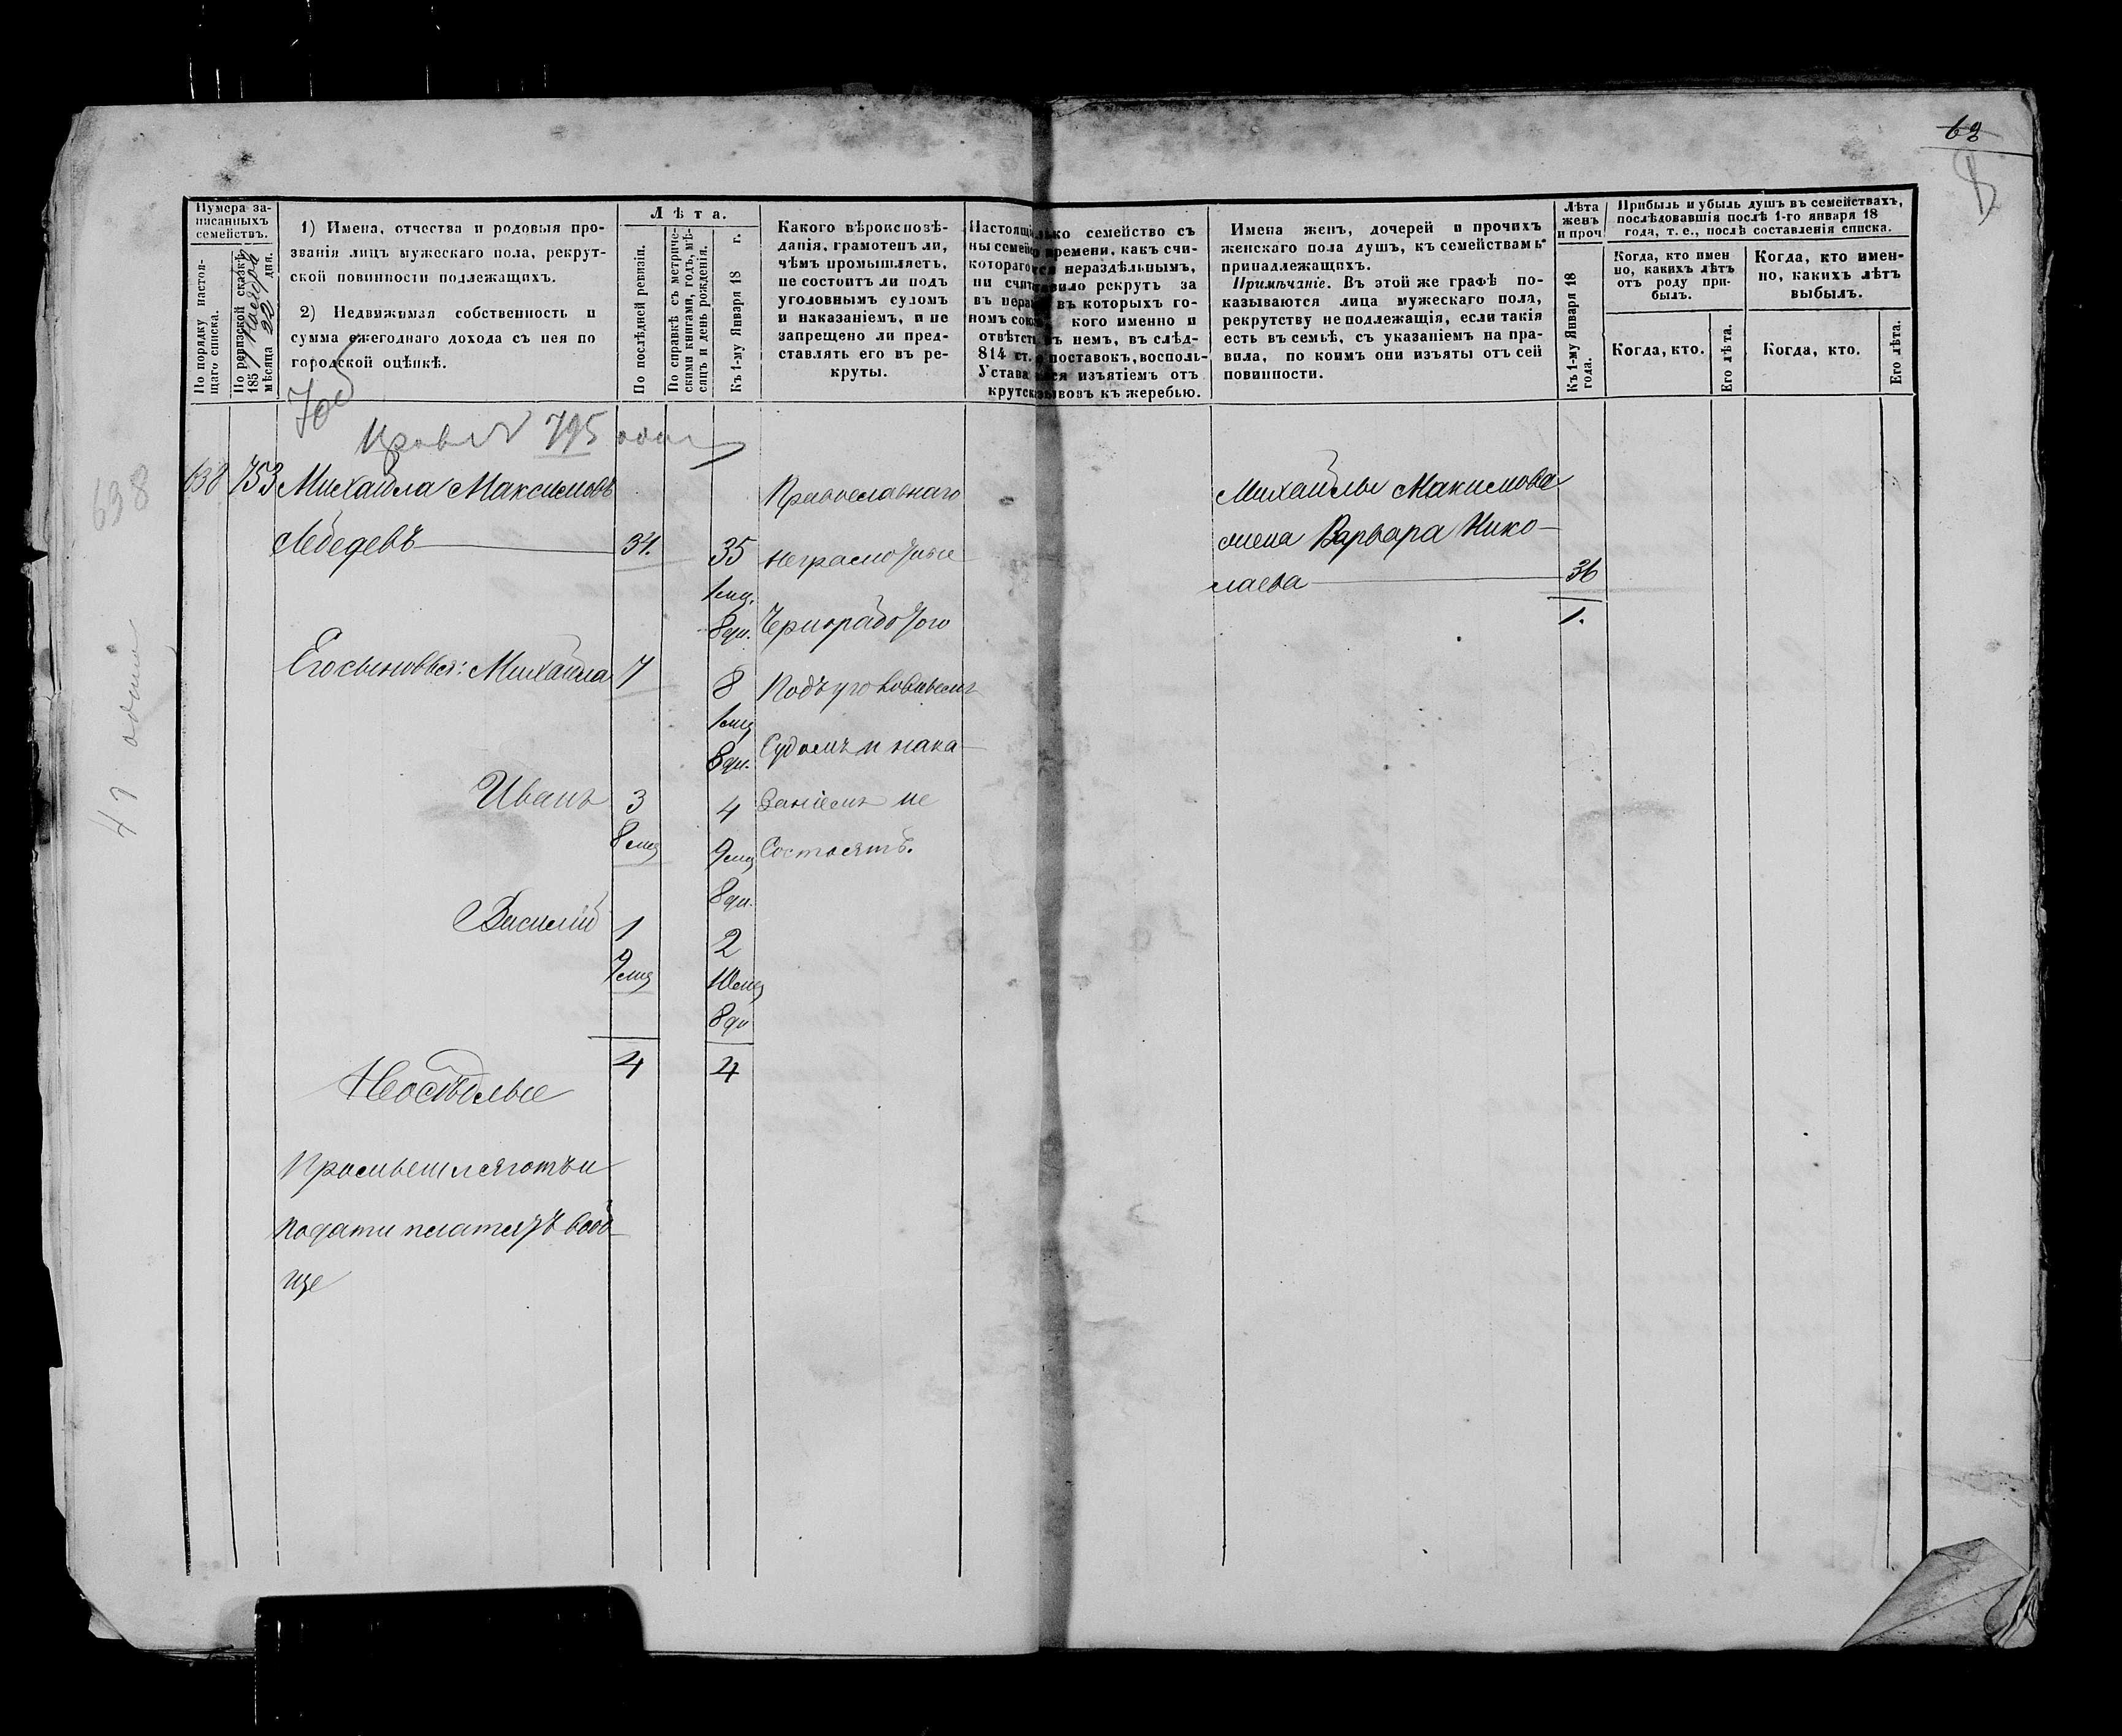 63
Нумера за-
писанныхъ
семействъ.
По порядку настоя-
щаго списка.
По ревизской сказкѣ
1857 Ноября
мѣсяца 22 дня.
1) Имена, отчества и родовыя про-
званія лицъ мужескаго пола, рекрут-
ской повинности подлежащихъ.
2) Недвижимая собственность и
сумма ежегоднаго дохода съ нея по
городской оцѣнкѣ.
Лѣта.
По послѣдней ревизіи.
По справкѣ съ метриче-
скими книгами, годъ, мѣ-
сяцъ и день рожденія.
Къ 1-му Января 18 г.
Какого вѣроисповѣ-
данія, грамотенъ ли,
чѣмъ промышляетъ,
не состоитъ ли подъ
уголовнымъ судомъ
и наказаніемъ, и не
запрещено ли пред-
ставлять его въ ре-
круты.
Настоящ лько семейство съ
ны семей времени, какъ счи-
котораго ся нераздѣльнымъ,
ни счит вило рекрутъ за
въ нера въ которыхъ го-
номъ сою кого именно и
отвѣтст въ немъ, въ слѣд-
814 ст. поставокъ, восполь-
Устава ся изъятіемъ отъ
крутск зывовъ къ жеребью.
Имена женъ, дочерей и прочихъ
женскаго пола душъ, къ семействамъ
принадлежащихъ.
Примѣчаніе. Въ этой же графѣ по-
казываются лица мужескаго пола,
рекрутству не подлежащія, если такія
есть въ семьѣ, съ указаніемъ на пра-
вила, по коимъ они изъяты отъ сей
повинности.
Лѣта
женъ
и проч
Къ 1-му Января 18
года.
Прибыль и убыль душъ въ семействахъ,
послѣдовавшія послѣ 1-го января 18
года, т. е., послѣ составленія списка.
Когда, кто имен
но, какихъ лѣтъ
отъ роду при-
былъ.
Когда, кто имен-
но, какихъ лѣтъ
выбылъ.
Когда, кто.
Его лѣта.
Когда, кто.
Его лѣта.
795
638
638 753 Михайла Максимовъ
Лебедевъ 34. 35
1 мц.
8 дн.
Православнаго
неграмотные
Черноработою
Подъ уголовнымъ
Судомъ и нака-
заніемъ не
Состоятъ.
Его сыновья: Михайла 7 8
1 мц
8 дн.
Иванъ 3 4
8 мц 9 мц
8 дн.
Василій 1 2
9 мц 10 мц
8 дн
4 4
Неосѣдлые
Промышляютъ и
подати платятъ вооб-
ще
Михайлы Макимова
жена Варвара Нико-
лаева 36
1.